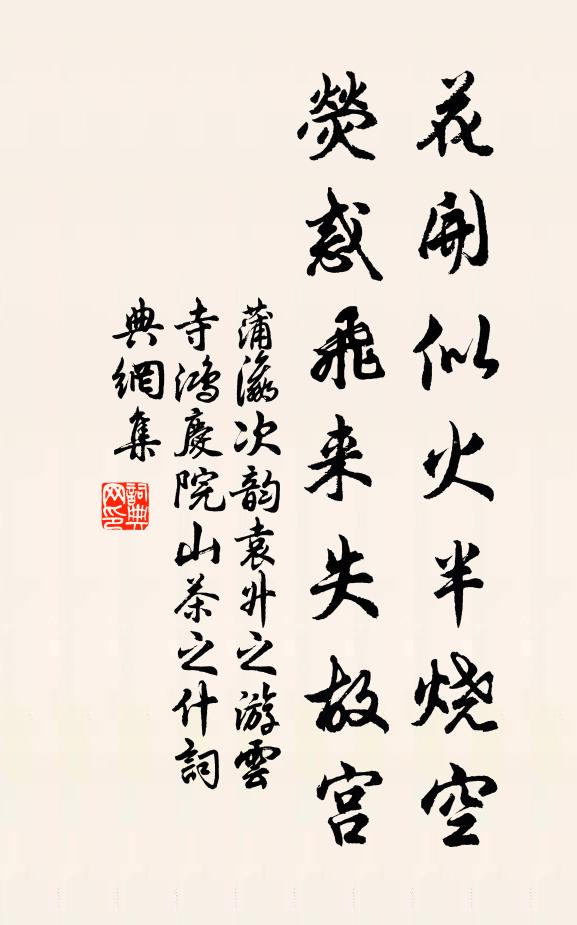 花開似火半燒空
熒惑飛来失故宮
蒲瀛次韵袁升之游雲
寺鴻慶院山茶之什詞
典網集
詞典
网印